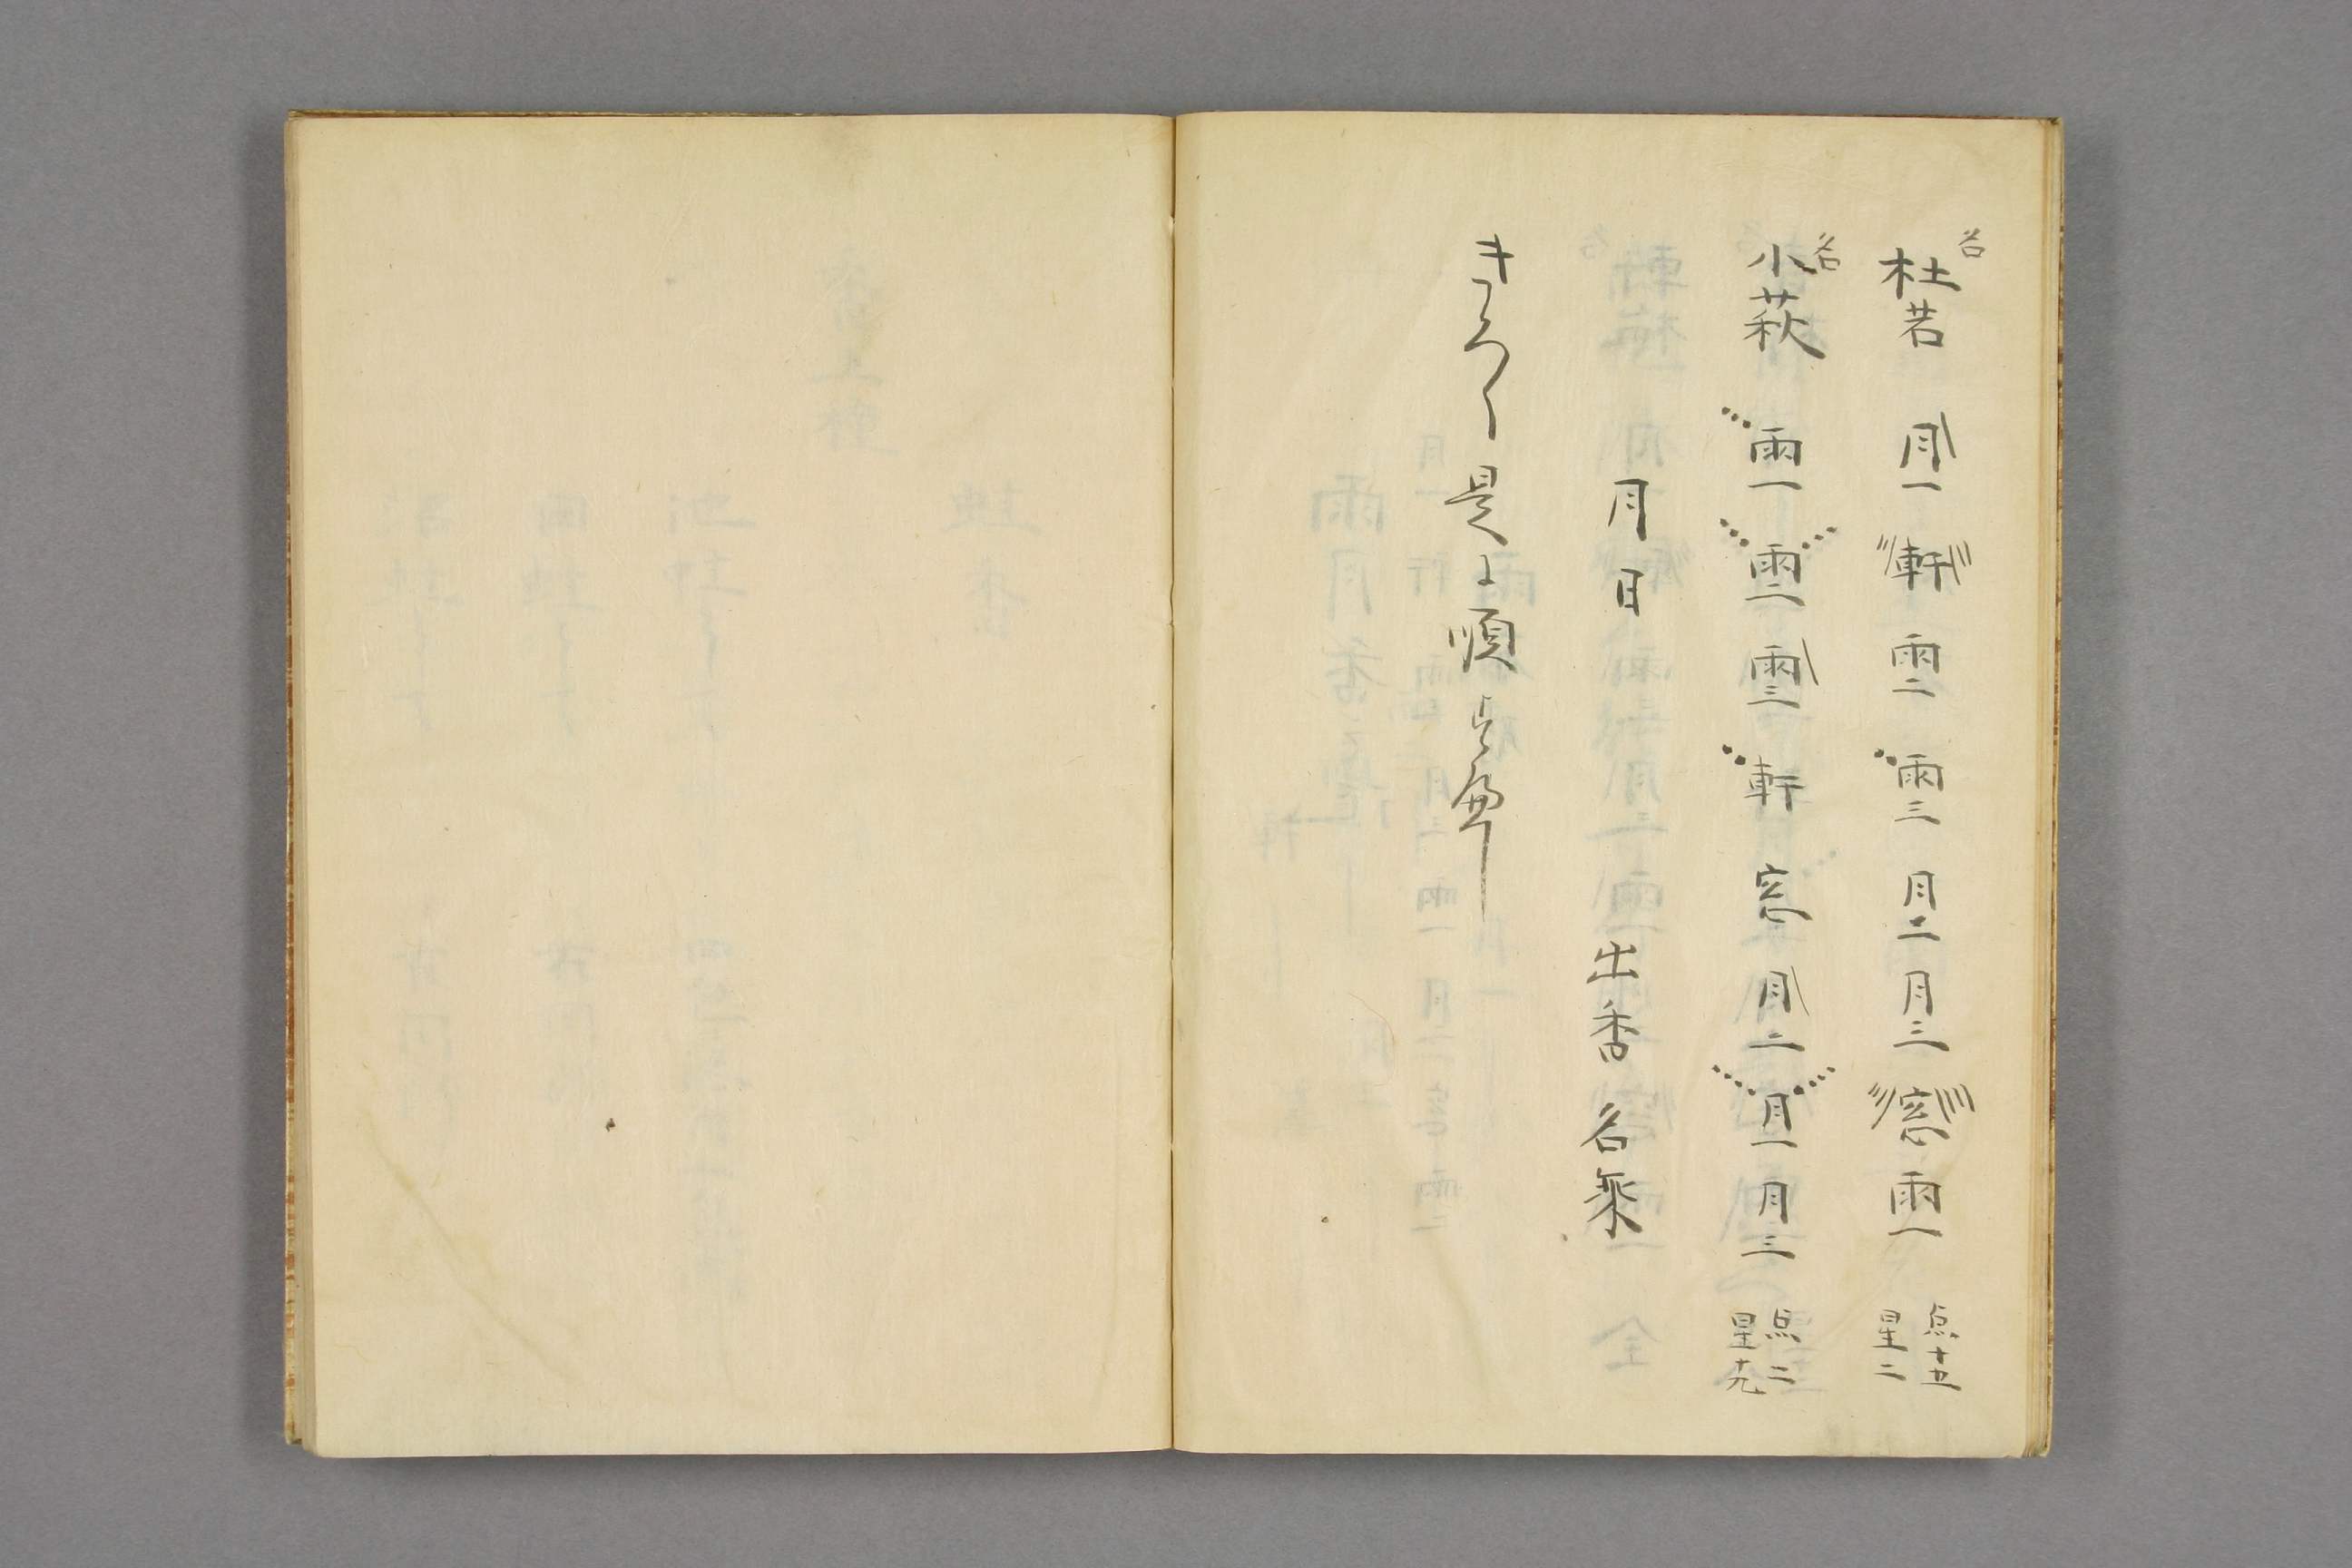 名
杜若 月一 軒 雨二 雨三 月二 月三 窓 雨一 点十五 星二
名
小萩 雨一 雨二 雨三 軒 窓 月二 月一 月三 点二 星十九
月日 出香 名乗
きろく 是に順